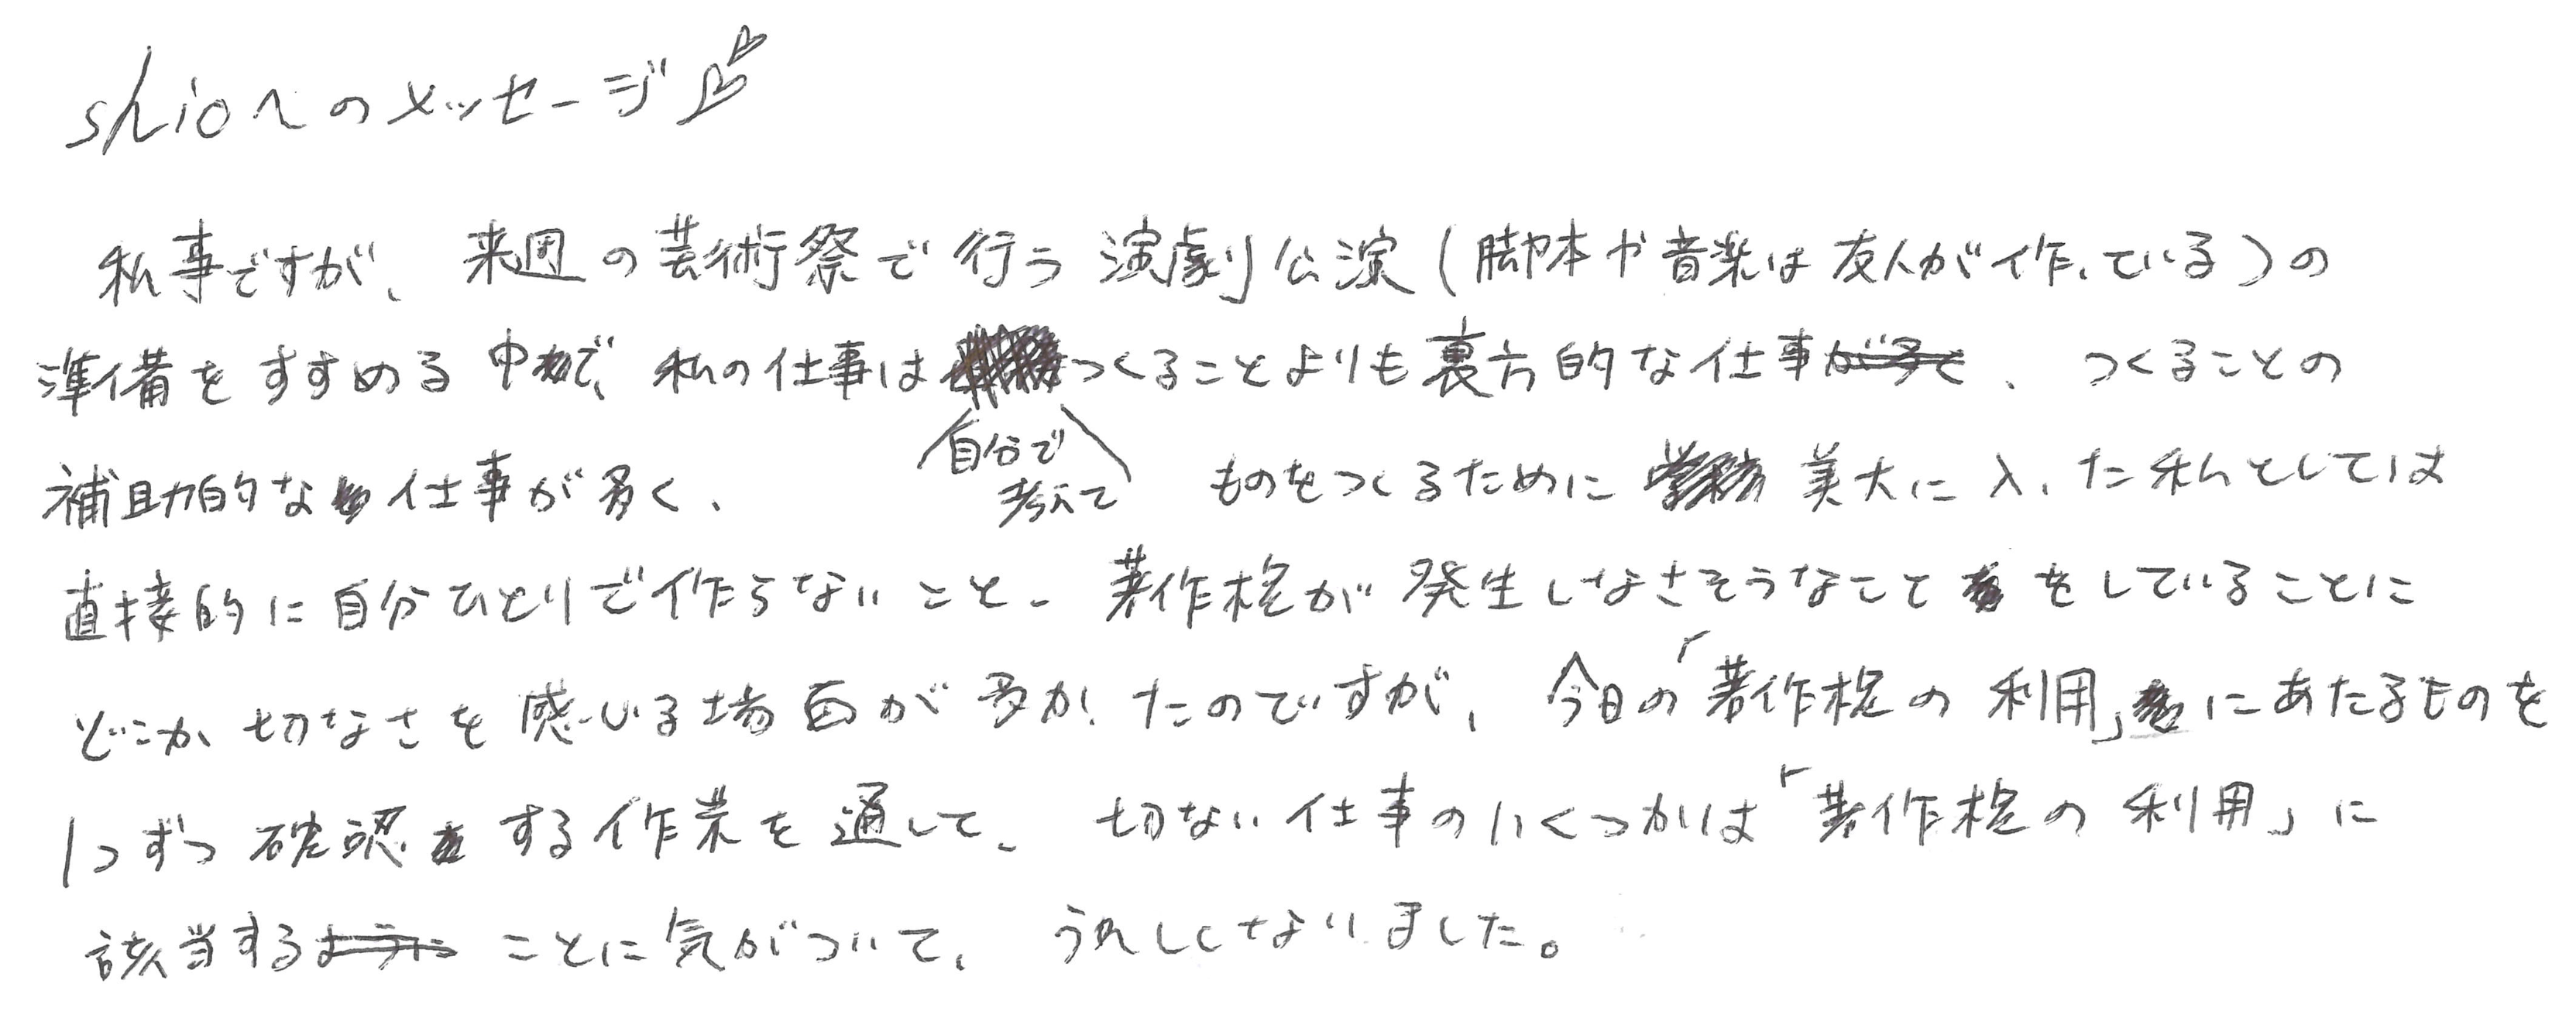 shioへのメッセージ
私事ですが、来週の芸術祭で行う演劇公演(脚本や音楽は友人が作っている)の
準備をすすめる中で、私の仕事はつくることよりも裏方的な仕事、つくることの
自分で
考えて
補助的な仕事が多く、ものをつくるために美大に入った私としては
直接的に自分ひとりで作らないこと、著作権が発生しなさそうなことをしていることに
どこか切なさを感じる場面が多かったのですが、今日の「著作権の利用」にあたるものを
1つずつ確認する作業を通して、切ない仕事のいくつかは「著作権の利用」に
該当することに気がついて、うれしくなりました。